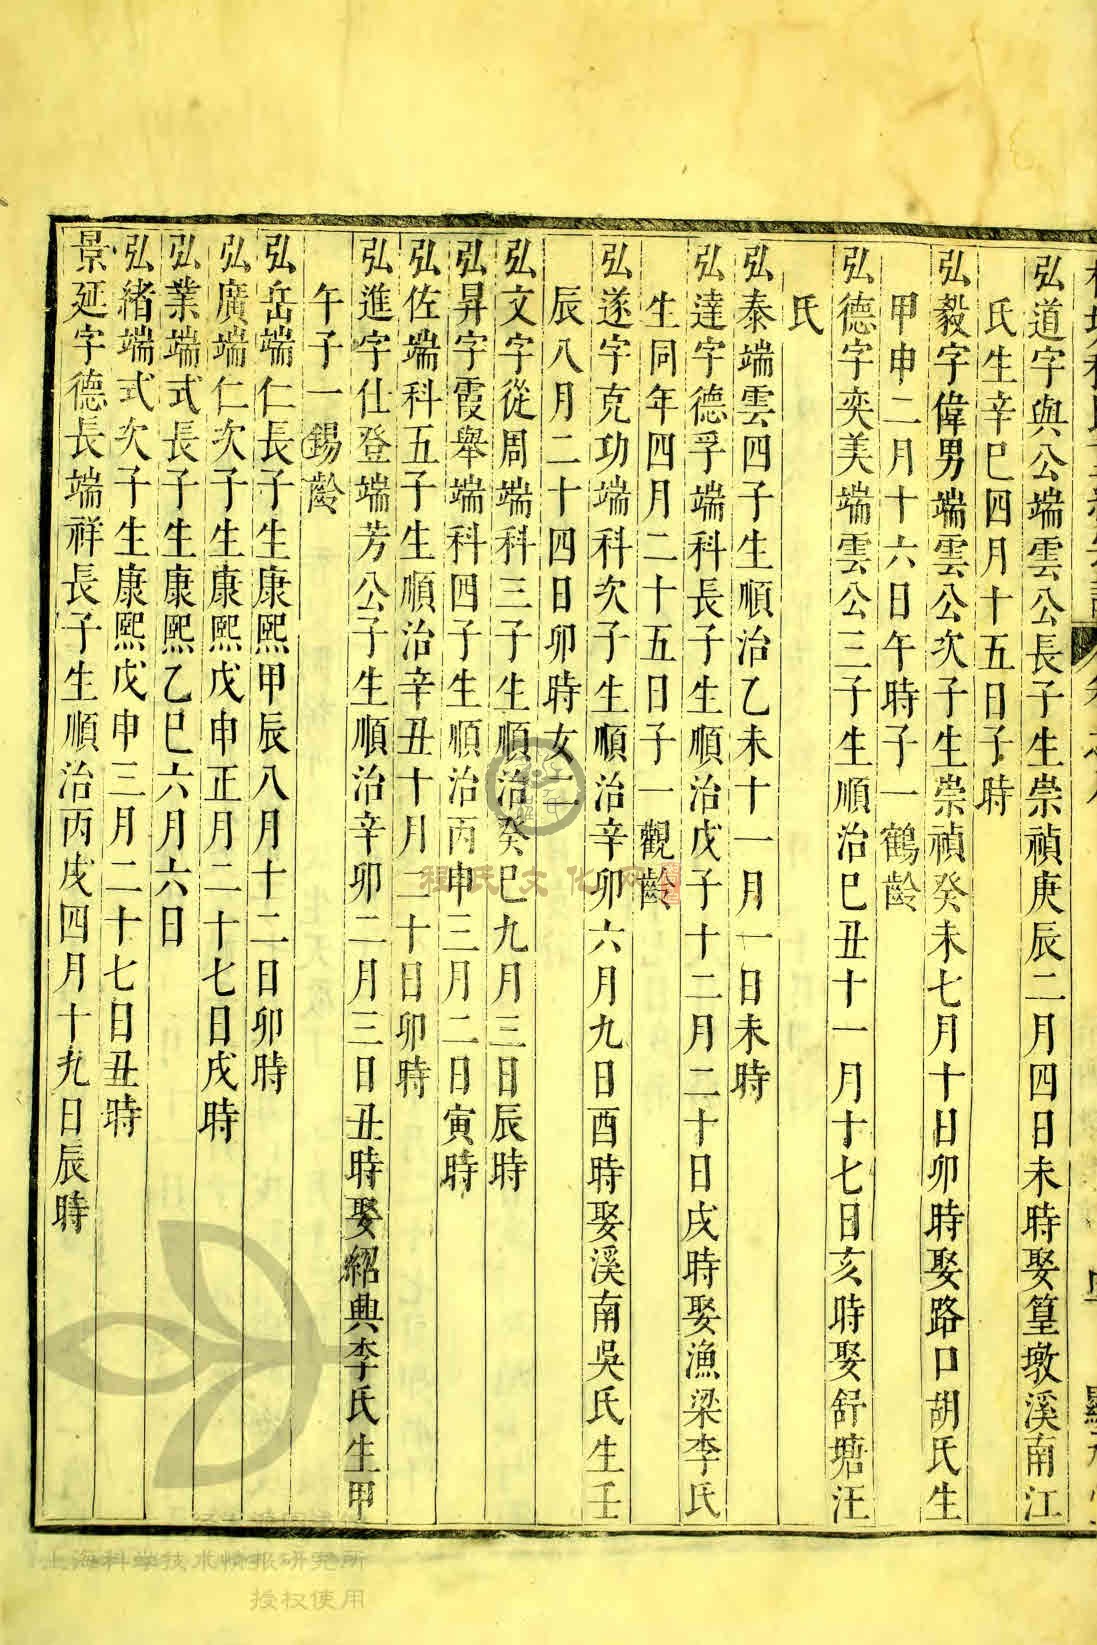 弘道字與公端雲公長子生崇禎庚辰二月四日未時娶篁墩溪南江
氏生辛巳四月十五日子時
弘毅字偉男端雲公次子生崇禎癸未七月十日卯時娶路口胡氏生
甲申二月十六日午時子一鶴齡
弘德字奕美端雲公三子生順治己丑十一月十七日亥時娶舒塘汪
氏
弘泰端雲四子生順治乙未十一月一日未時
弘達字德孚端科長子生順治戊子十二月二十日戌時娶漁梁李氏
生同年四月二十五日子一觀齡
弘遂字克功端科次子生順治辛卯六月九日酉時娶溪南吳氏生壬
辰八月二十四日卯時女二
弘文字從周端科三子生順治癸巳九月三日辰時
弘昇字霞舉端科四子生順治丙申三月二日寅時
弘佐端科五子生順治辛丑十月二十日卯時
弘進字仕登端芳公子生順治辛卯二月三日丑時娶紹興李氏生甲
午子一錫齡
弘岳端仁長子生康熙甲辰八月十二日卯時
弘廣端仁次子生康熙戊申正月二十七日戌時
弘業端式長子生康熙乙巳六月六日
弘緒端式次子生康熙戊申三月二十七日丑時
景延字德長端祥長子生順治丙戌四月十九日辰時
程氏文化网
上海科学技术情报研究所
授权使用